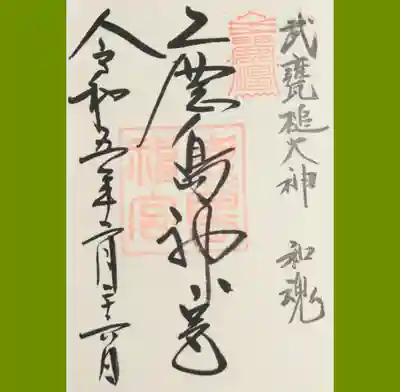 武甕槌大神 和魂
鹿島神宮
令和五年二月二十六日